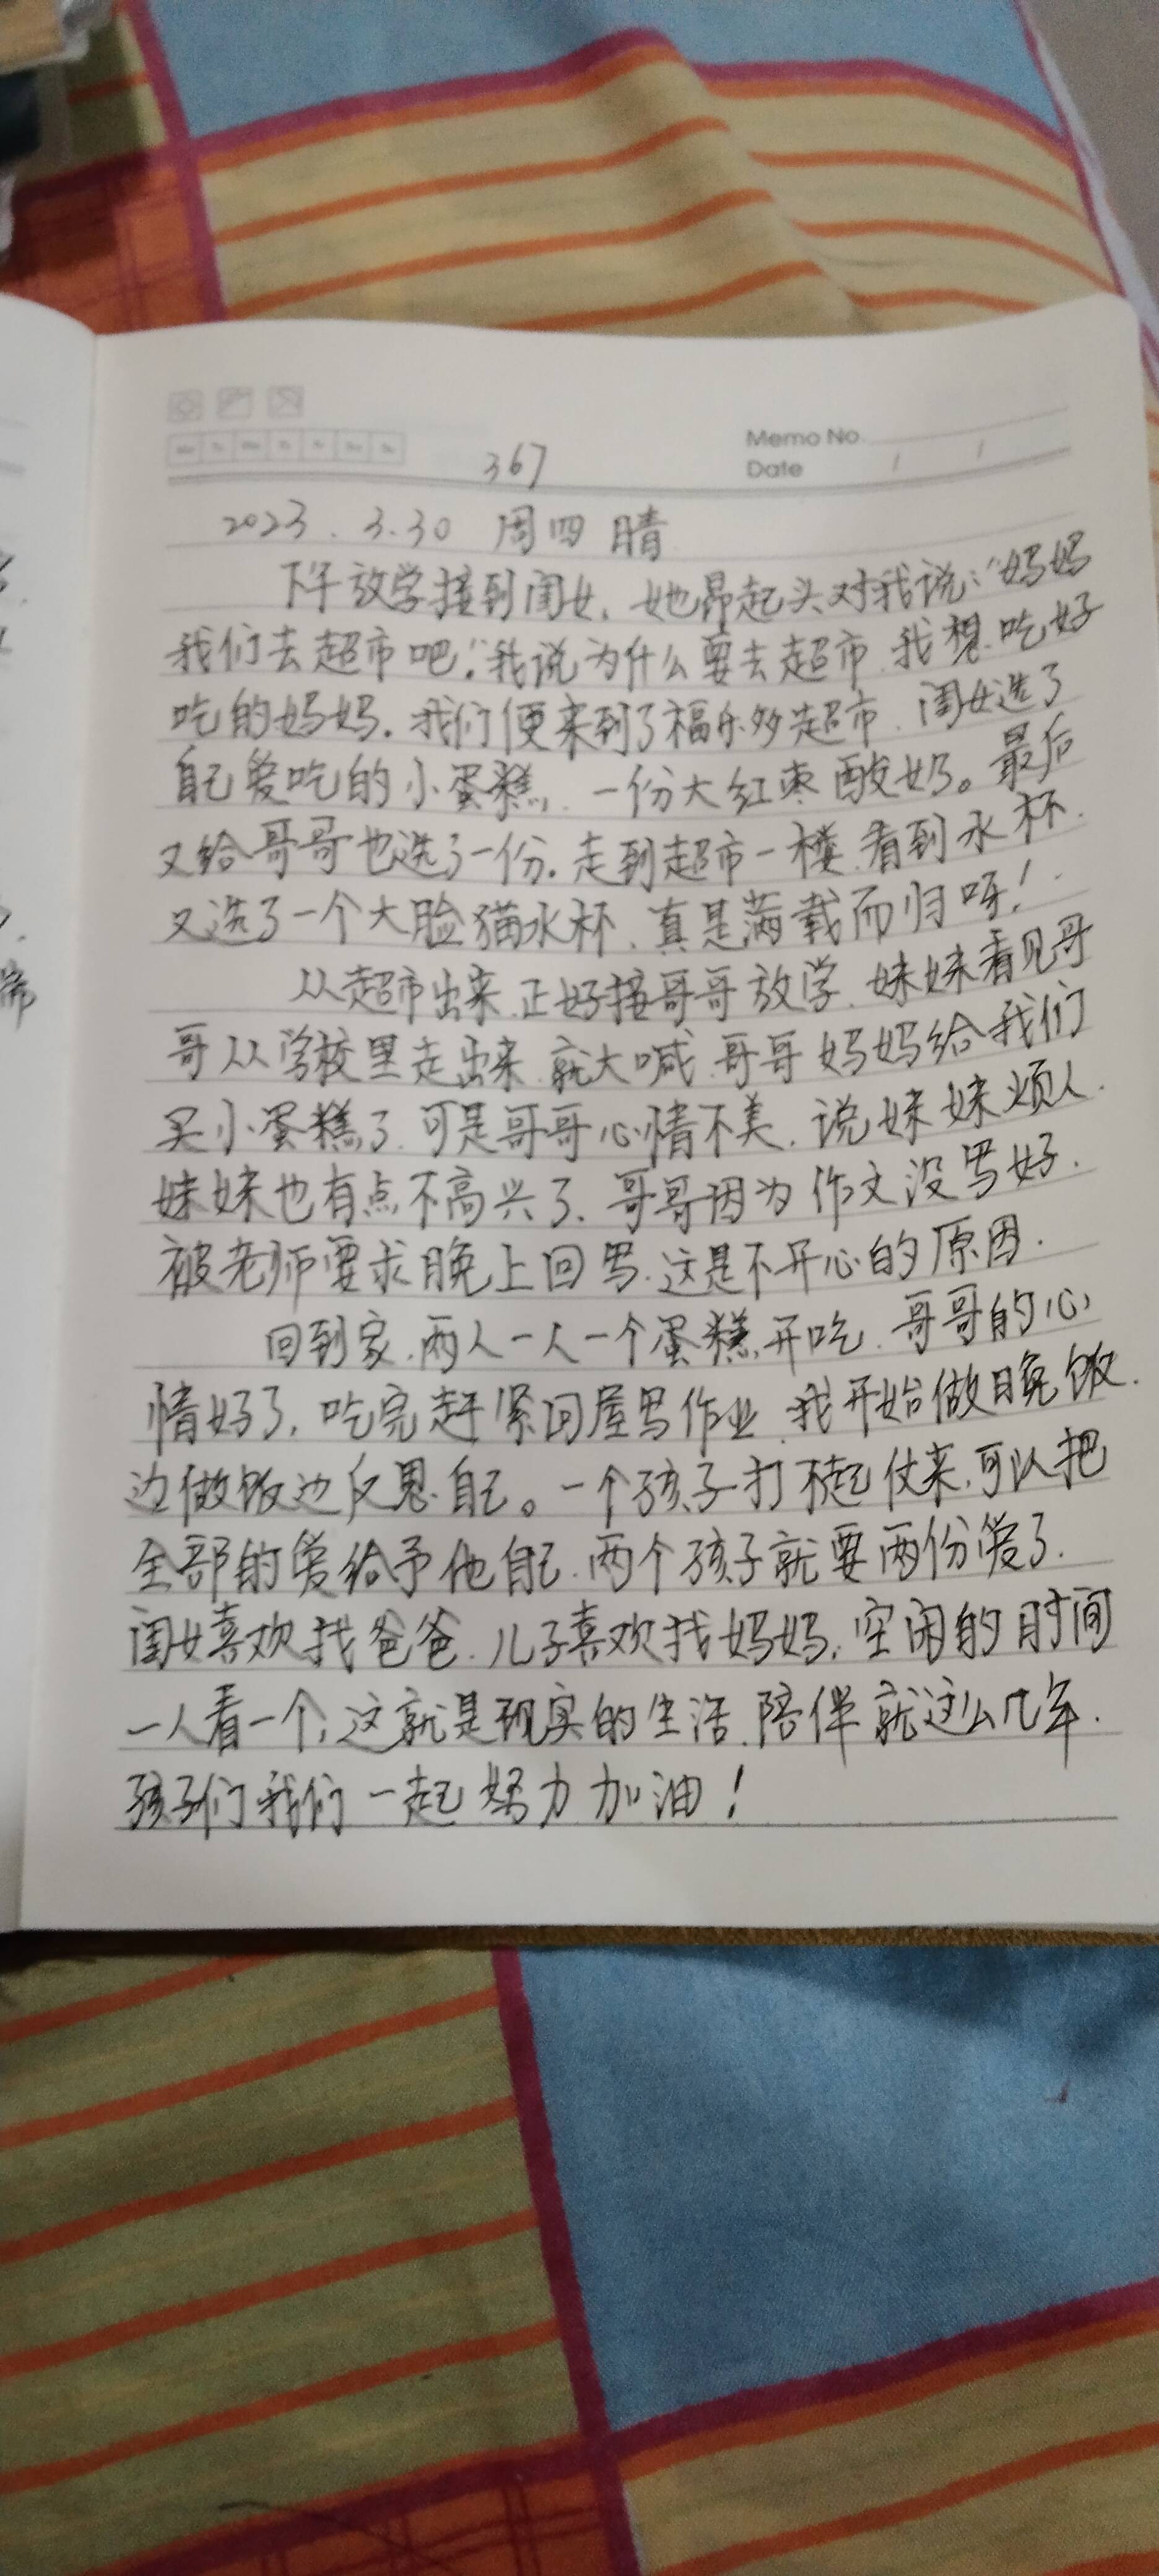 Memo No.
367
Date / /
2023.3.30 周四 晴
下午放学接到闺女,她昂起头对我说:“妈妈
我们去超市吧.”我说为什么要去超市.我想吃好
吃的妈妈.我们便来到了福乐多超市.闺女选了
自己爱吃的小蛋糕,一份大红枣酸奶。最后
又给哥哥也选了一份.走到超市一楼.看到水杯.
又选了一个大脸猫水杯、真是满载而归呀!
从超市出来.正好接哥哥放学.妹妹看见哥
哥从学校里走出来.就大喊.哥哥妈妈给我们
买小蛋糕了.可是哥哥心情不美.说妹妹烦人.
妹妹也有点不高兴了、哥哥因为作文没写好.
被老师要求晚上回写.这是不开心的原因.
回到家.两人一人一个蛋糕开吃.哥哥的心
情好了,吃完赶紧回屋写作业.我开始做晚饭.
边做饭边反思自己。一个孩子打不起仗来,可以把
全部的爱给予他自己.两个孩子就要两份爱了.
闺女喜欢找爸爸.儿子喜欢找妈妈,空闲的时间
一人看一个,这就是现实的生活.陪伴就这么几年.
孩子们我们一起努力加油!